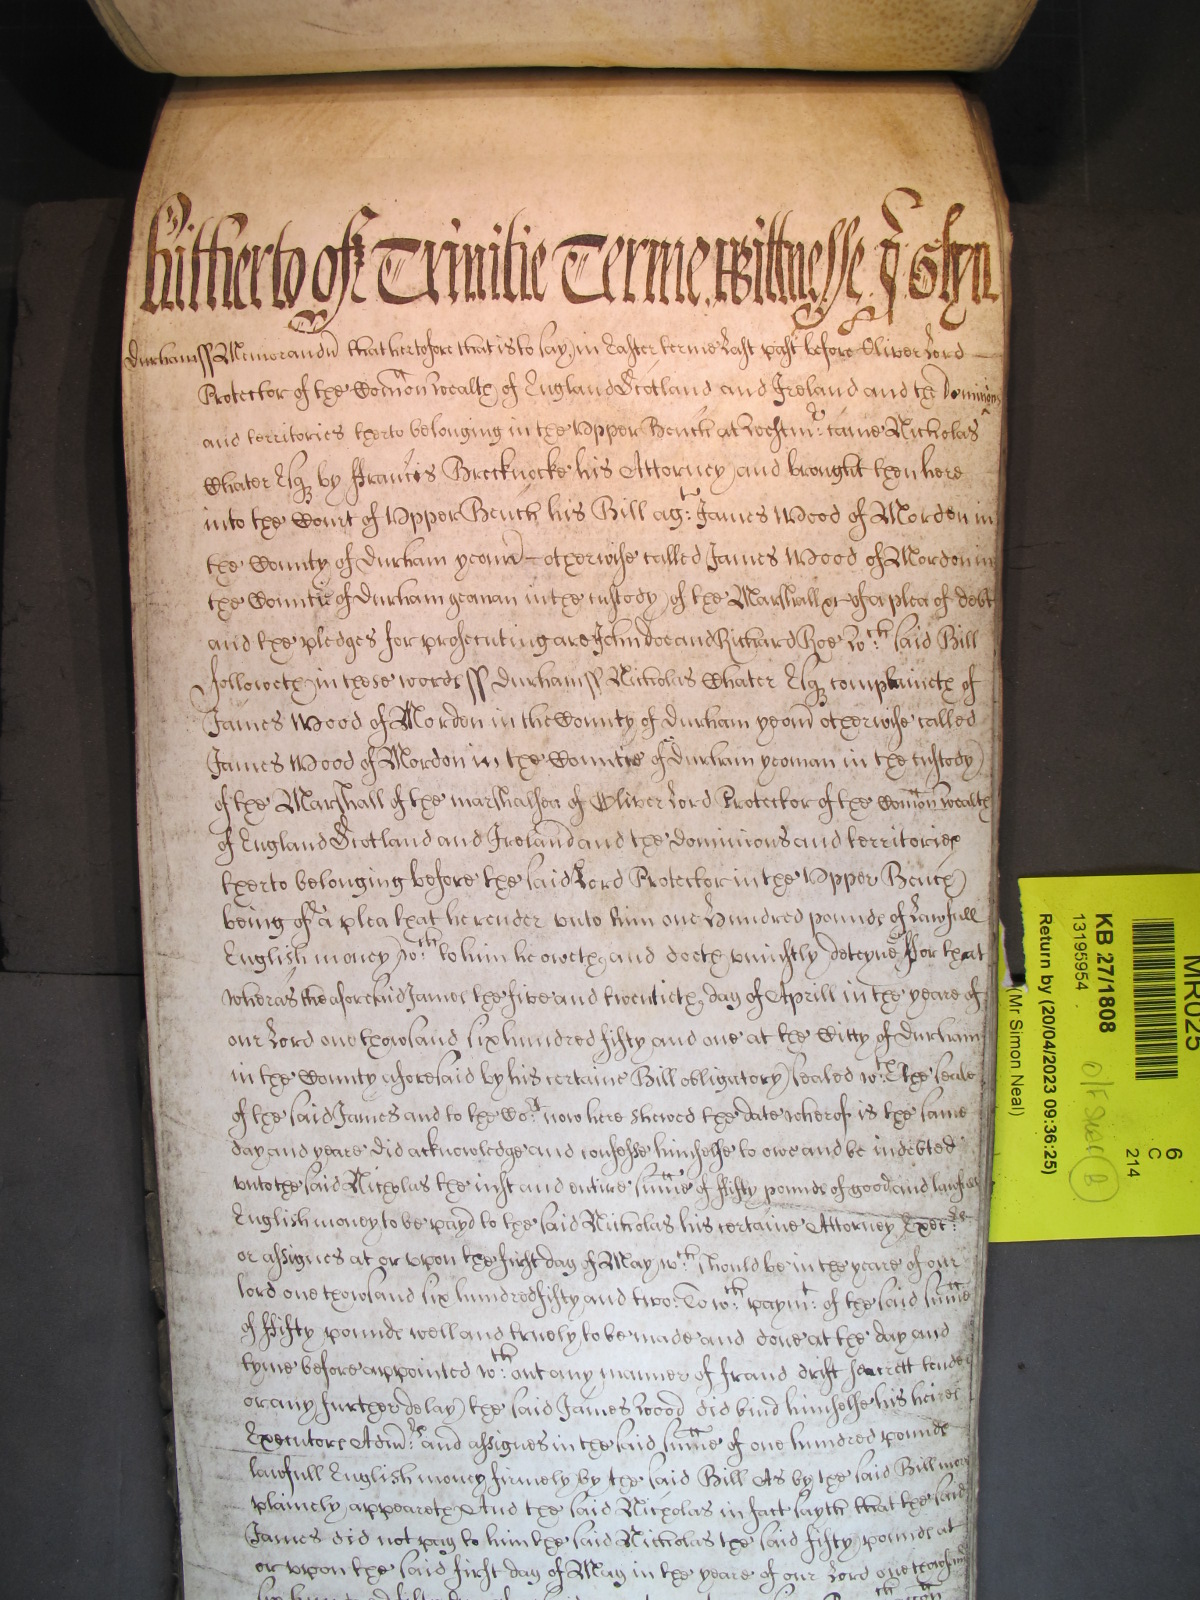 hitherto of Trinitie Terme wittnesse
Durham ss Memorandu that hertofore that is to say in Easter terme last past before Oliver Lord
Protector of the Comon wealth of England Scotland and Ireland and the Dominions
and territories therto belonging in the Upper Bench at Westmr: came Nicholas
Chater Esq by Francis Brecknocke his Attorney and brought then here
into the Court of Upper Bench his Bill agt: James Wood of Mordon in
the County of Durham yeom otherwise called James Wood of Mordon in
the Countie of Durham yeoman in the custody of the Marshall &c of a plea of debt
and the pledges for prosecuting are John Doe and Richard Roe wch: said Bill
followeth in these words ss Durham ss Nicholas Chater Esq complaineth of
James Wood of Mordon in the County of Durham yeom otherwise called
James Wood of Mordon in the Countie of Durham yeoman in the custody
of the Marshall of the marshalsea of Oliver Lord Protector of the Comon wealth
of England Scotland and Ireland and the Dominions and territories
therto belonging before the said Lord Protector in the Upper Bench
being of a plea that he render unto him one hundred pounds of lawfull
English money wch: to him he oweth and doth uniustly deteyne For that
wheras the aforesaid James the five and twentieth day of Aprill in the yeare of
our Lord one thowsand six hundred fifty and one at the Citty of Durham
in the County aforesaid by his certaine Bill obligatory sealed wth: the seale
of the said James and to the Cort: now here shewed the date wherof is the same
day and yeare did acknowledge and confesse himselfe to owe and be indebted
unto the said Nicholas the iust and entire sume of fifty pounds of good and lawfull
English money to be payd to the said Nicholas his certaine Attorney Execrs:
or assignes at or upon the first day of May wch: should be in the yeare of our
lord one thowsand six hundred fifty and two To wch: paymt: of the said sume
of fifty pounds well and truely to be made and done at the day and
tyme before appointed wth: out any manner of fraud drift seacrett
or any further delay the said James Wood did bind himselfe his heires
Executors Admrs: and assignes in the said sume of one hundred pounds
lawfull English money firmely by the said Bill As by the said Bill more
plainely appeareth And the said Nicholas in fact sayth that the said
James did not pay to him the said Nicholas the said fifty pounds at
or upon the said first day of May in the yeare of our Lord one thowsand
six hundred fifty
MR025
6
C
214
KB 27/1808
13195954
Return by (20/04/2023 09:36:25)
(Mr Simon Neal)